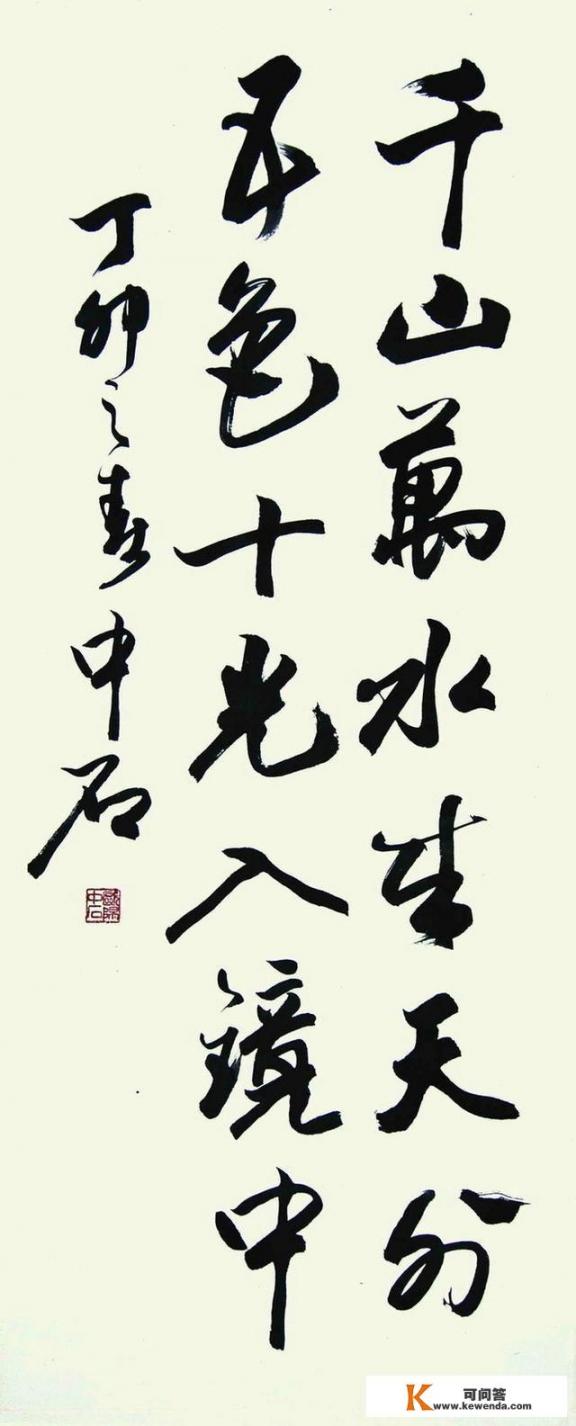 千山萬水生天外
五色十光入鏡中
丁卯之春中石
可问答
www.kewenda.com